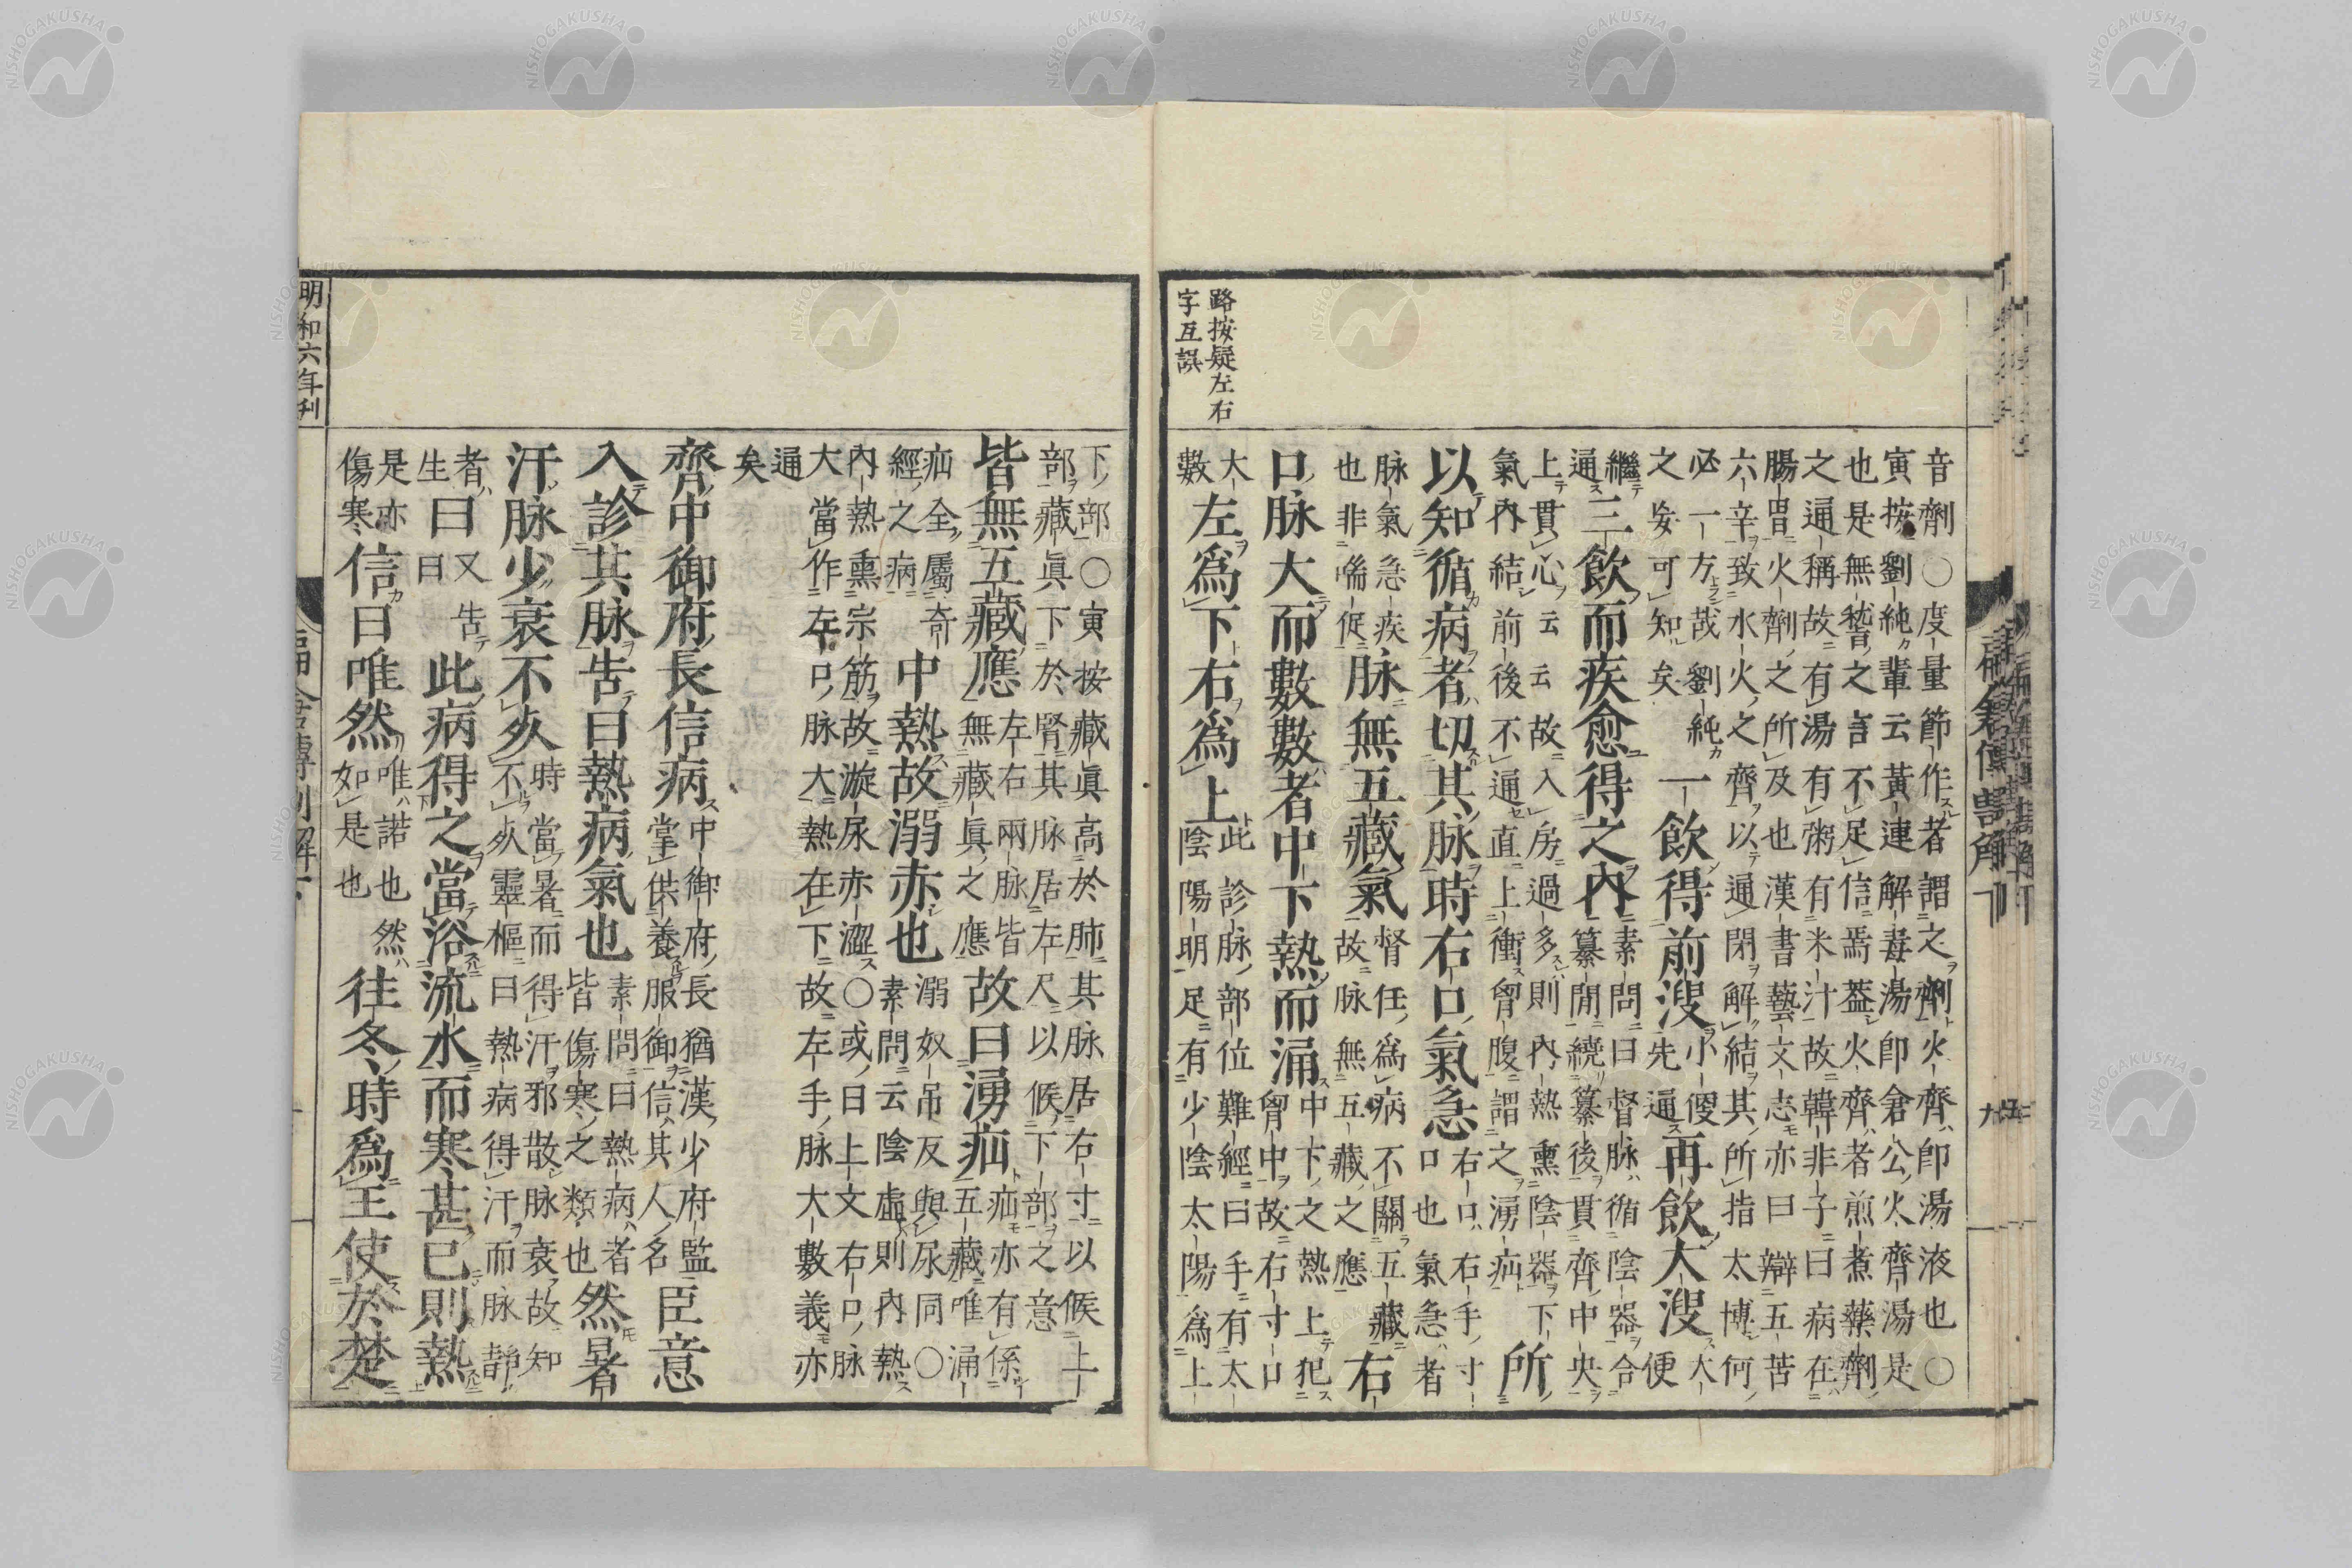 路按疑左右
字互誤
音劑○度量節作者謂之劑火齊即湯液也○
寅按劉純輩云黃連解毒湯即倉公火齊湯是
也是無稽之言不足信焉蓋火齊者煎煮藥劑
之通稱故有湯有粥有米汁故韓非子曰病在
腸胃火劑之所及也漢書藝文志亦曰辯五苦
六辛致水火之齊以通閉解結其所指太博何
必一方哉劉純
之妄可知矣
一飲得前溲
小便
先通
再飲大溲
大
便
繼
通
三飲而疾愈得之內
素問曰督脉循陰器合
纂閒繞纂後貫齊中央
上貫心云云故入房過多則內熱熏陰器下
氣內結前後不通直上衝胷腹謂之湧疝
所
以知循病者切其脉時右口氣急
右口右手寸
口也氣急者
脉氣急疾
也非喘促
脉無五藏氣
督任爲病不關五藏
故脉無五藏之應
右
口脉大而數數者中下熱而涌
中下之熱上犯
胷中故右寸口
大
數
左爲下右爲上
此診脉部位難經曰手有太
陰陽明足有少陰太陽爲上
下部○寅按藏眞高於肺其脉居右寸以候上
部藏眞下於腎其脉居左尺以候下部之意
皆無五藏應
左右兩脉皆
無藏眞之應
故曰湧疝
疝亦有係
五藏唯涌
疝全屬奇
經之病
中熱故溺赤也
溺奴吊反與尿同○
素問云陰虛則內熱
內熱熏宗筋故漩尿赤澀○或曰上文右口脉
大當作左口脉大熱在下故左手脉大數義亦
通
矣
齊中御府長信病
中御府長猶漢少府監
掌供養服御信其人名
臣意
入診其脉告曰熱病氣也
素問曰熱病者
皆傷寒之類也
然暑
汗脉少衰不死
時當暑而得汗邪散脉衰故知
不死靈樞曰熱病得汗而脉靜
者
生
曰
又告
曰
此病得之當浴流水而寒甚已則熱
是亦
傷寒
信曰唯然
唯諾也然
如是也
往冬時爲王使於楚
明和六年刊